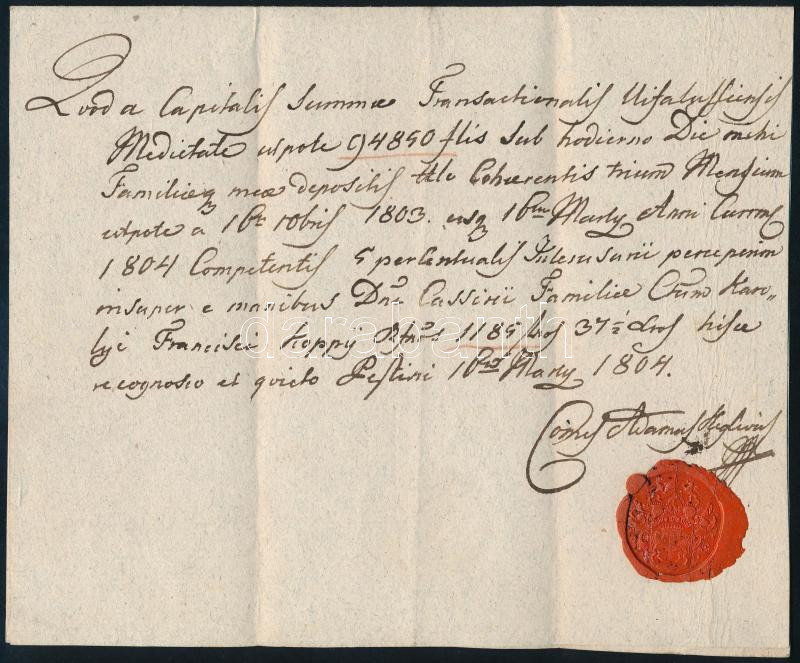 Quod a Capitalis Summae Transactionalis Ujfaluffiensis
Medietate utpote 94850 flis sub hodierno Die mihi
Familiaeq mea depositis Cohaerentis trium Mensium
utpote a 1ba 10bris 1803. usq 1bam Marty Anni Currentis
1804 Competentis 5 perCentualis Interusurii perceperim
insuper e manibus Dni Cassirii Familiae Crum Karo-
lyi Francisci Koppij Rfnos 1185 37½ Xros hisce
recognosco et quieto Pestini 1ma Marty 1804.
Comes Adamus
darabanth